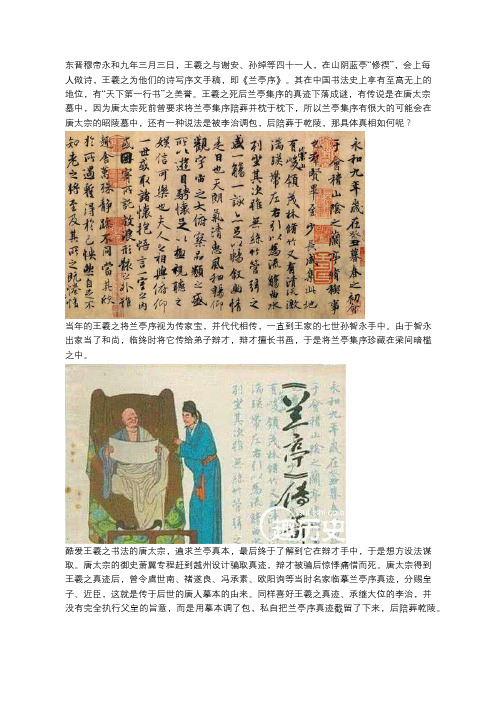 东晋穆帝永和九年三月三日，王羲之与谢安、孙绰等四十一人，在山阴蓝亭“修禊”，会上每
人做诗，王羲之为他们的诗写序文手稿，即《兰亭序》。其在中国书法史上享有至高无上的
地位，有“天下第一行书”之美誉。王羲之死后兰亭集序的真迹下落成谜，有传说是在唐太宗
墓中，因为唐太宗死前曾要求将兰亭集序陪葬并枕于枕下，所以兰亭集序有很大的可能会在
唐太宗的昭陵墓中，还有一种说法是被李治调包，后陪葬于乾陵，那具体真相如何呢？
永和九年歲在癸丑暮春之初會
于會稽山陰之蘭亭脩稧事
也羣賢畢至少長咸集此地
有崇山峻領茂林脩竹又有清流激
湍暎帶左右引以為流觴曲水
列坐其次雖無絲竹管弦之
盛一觴一詠亦足以暢叙幽情
是日也天朗氣清惠風和暢仰
觀宇宙之大俯察品類之盛
所以遊目騁懷足以極視聽之
娛信可樂也夫人之相與俯仰
一世或取諸懷抱悟言一室之內
或因寄所託放浪形骸之外雖
趣舍萬殊靜躁不同當其欣
於所遇暫得於己快然自足不
知老之將至及其所之既倦情
当年的王羲之将兰亭序视为传家宝，并代代相传，一直到王家的七世孙智永手中。由于智永
出家当了和尚，临终时将它传给弟子辩才，辩才擅长书画，于是将兰亭集序珍藏在梁间暗槛
之中。
永和九年歲在
于會稽山陰之蘭亭
有峻領茂林脩竹又
湍暎帶左右引以為流
列坐其次雖無絲竹管
《兰亭》传
趣历史
酷爱王羲之书法的唐太宗，遍求兰亭真本，最后终于了解到它在辩才手中，于是想方设法谋
取。唐太宗的御史萧翼专程赶到越州设计骗取真迹，辩才被骗后惊悸痛惜而死。唐太宗得到
王羲之真迹后，曾令虞世南、褚遂良、冯承素、欧阳询等当时名家临摹兰亭序真迹，分赐皇
子、近臣，这就是传于后世的唐人摹本的由来。同样喜好王羲之真迹、承继大位的李治，并
没有完全执行父皇的旨意，而是用摹本调了包，私自把兰亭序真迹截留了下来，后陪葬乾陵。